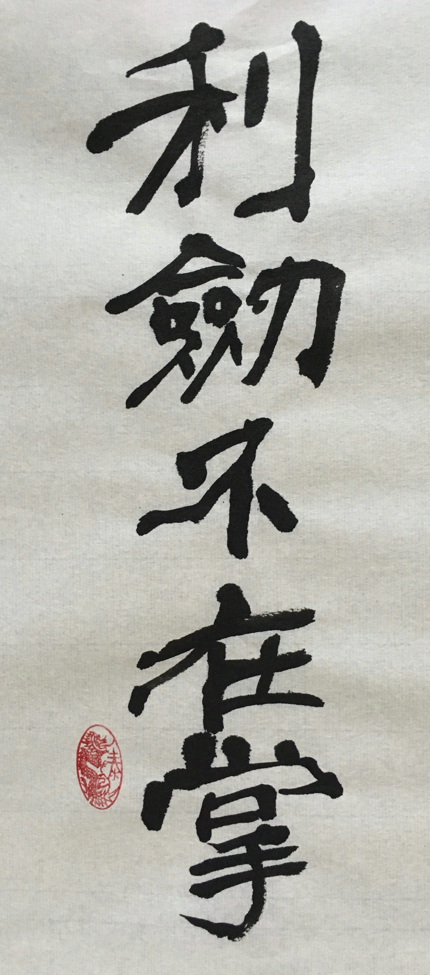 利劒不在掌